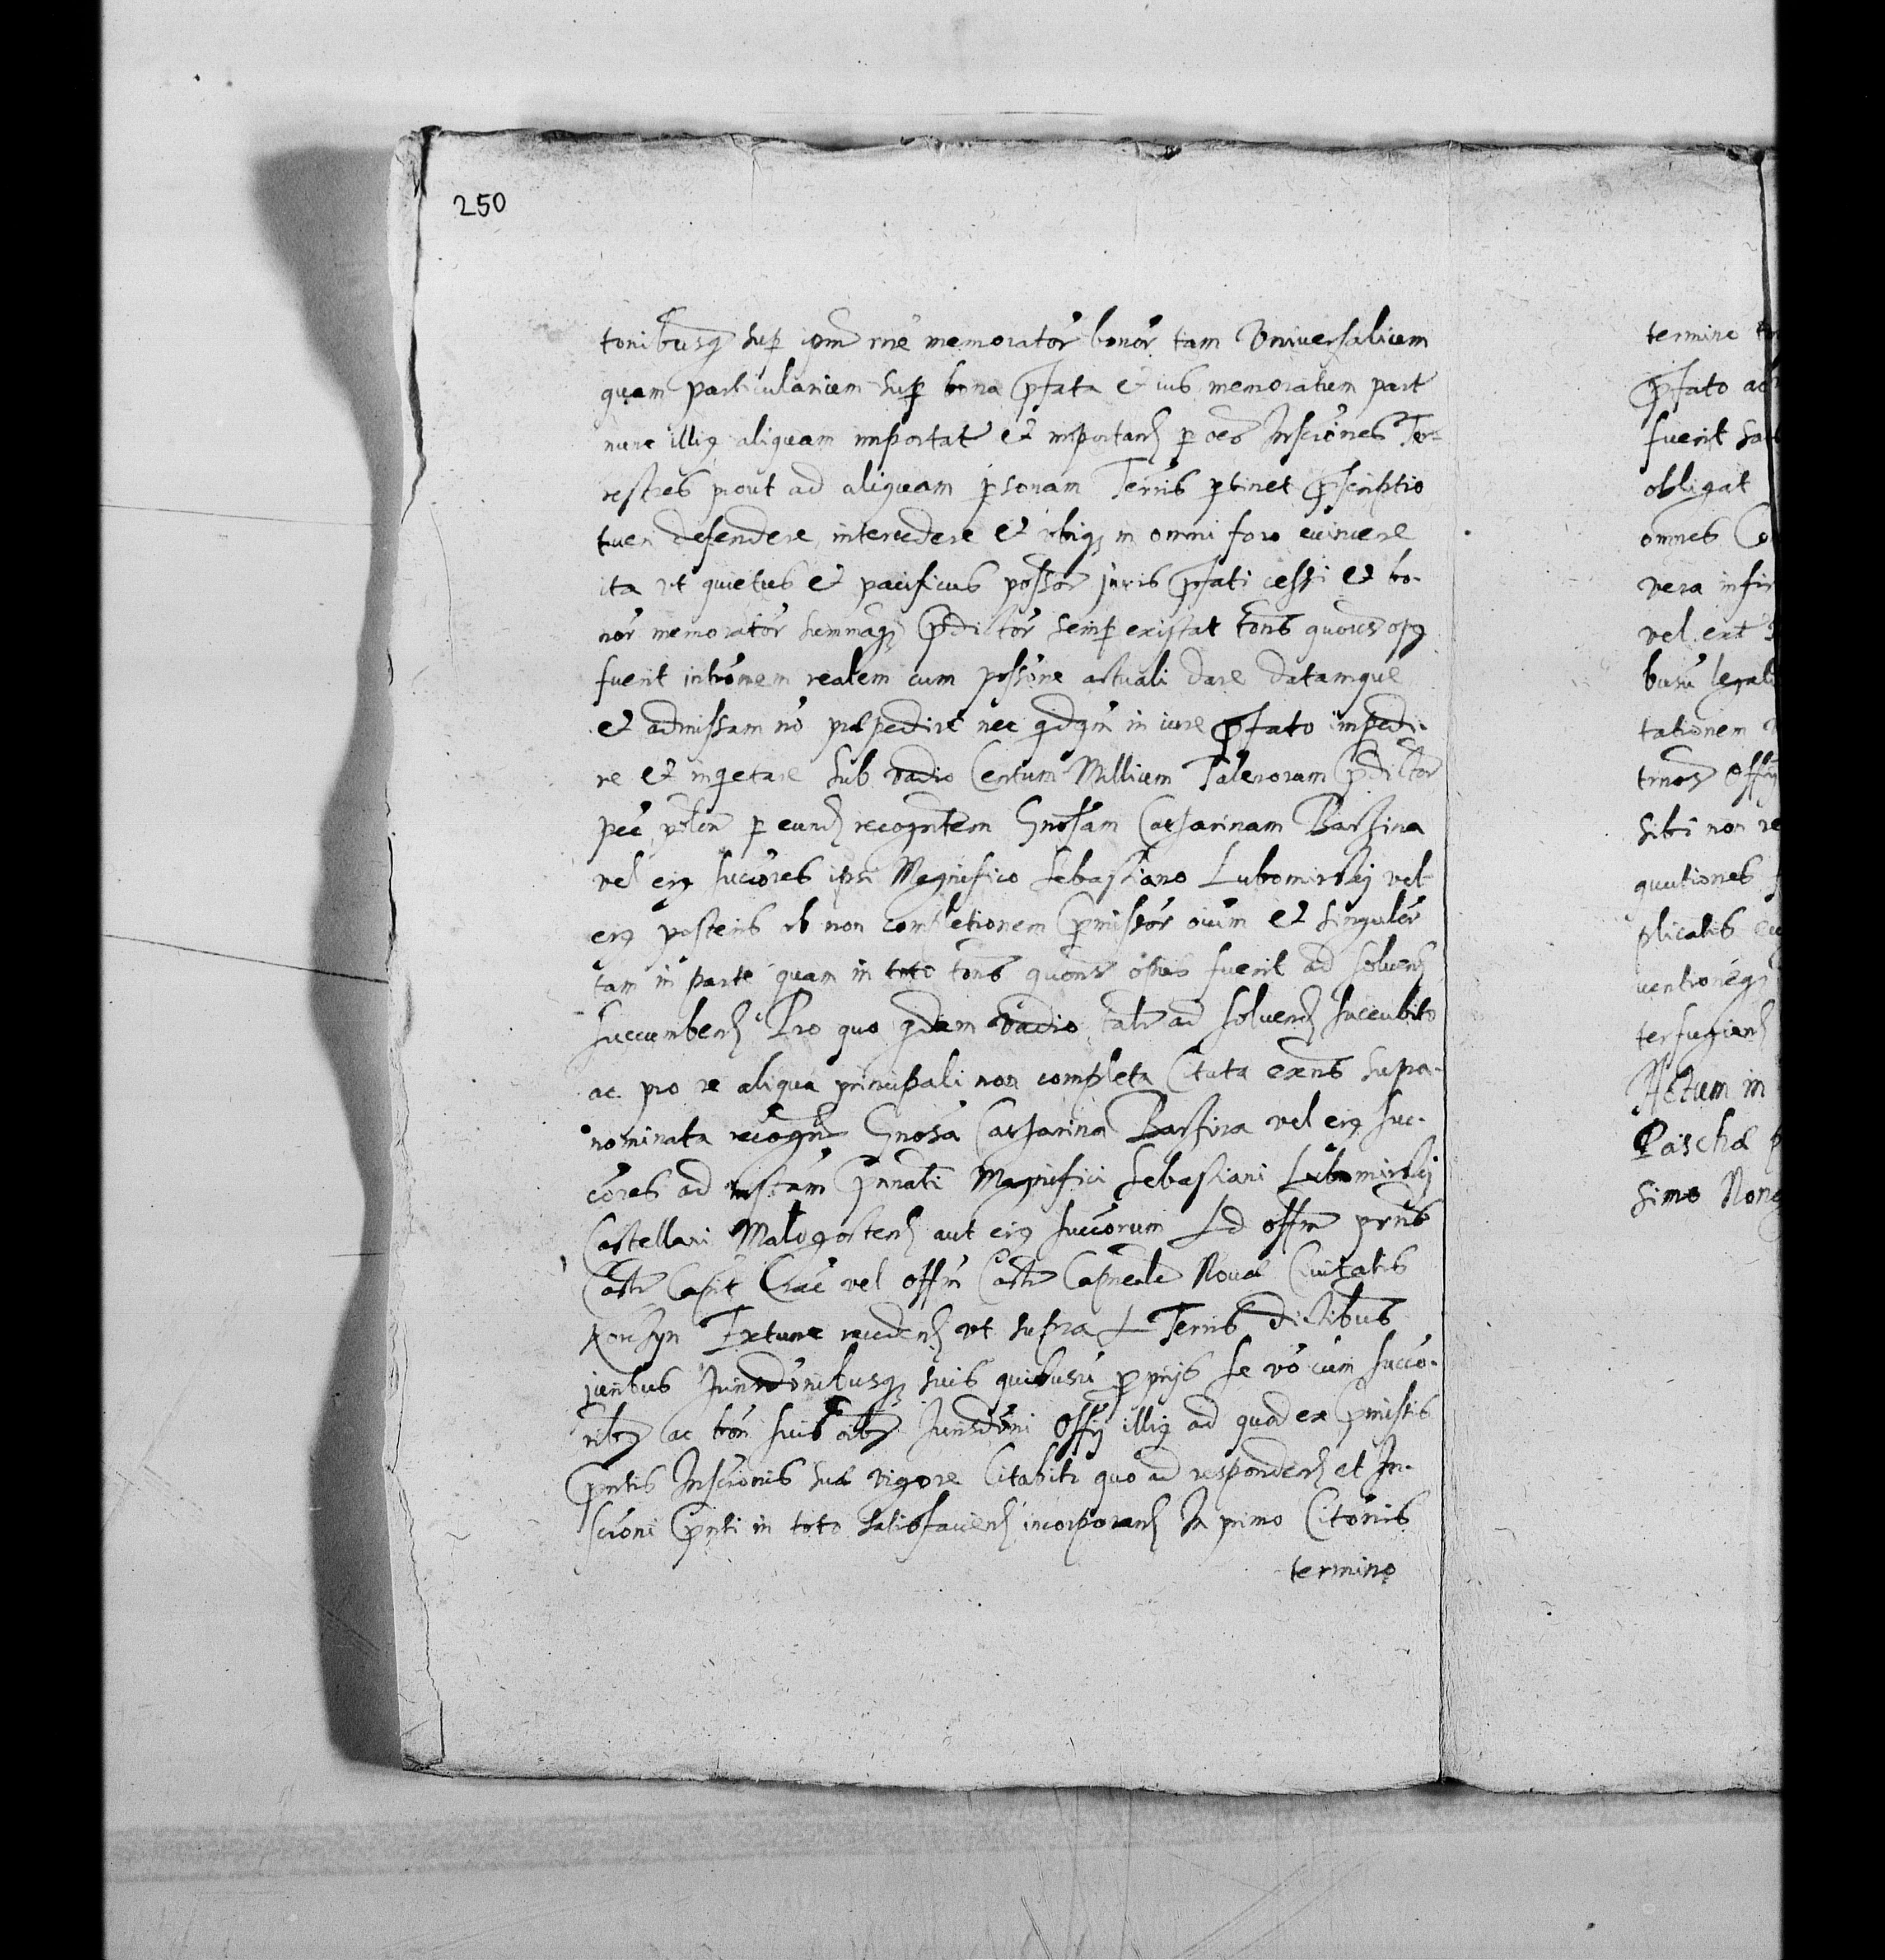 250
tonibusq sup ipm rne memorator bonor tam Universalium
quam particularium sup bona pfata et ius memoratum part
nunc illiq aliquam importat et importan p oes Inscriones Ter-
restres prout ad aliquam psonam Terris ptinet pscriptio
tueri defendere intercedere et vbiq in omni foro euincere
ita vt quietus et pacificus possor juris pfati cessi et bo-
nor memorator summaq pdictor semp existat tons quous opq
fuerit intromem realem cum possone actuali dare datamque
et admissam no præpedire nec qdqm in iure pfato impedi-
re et inqetare sub vadio Centum Millium Talerorum pdictor
pec p eund recogntem Gnosam Catharinam
vel eiq succores ipsi Magnifico Sebastiano Lubomirskij vel
eiq posteris ob non completionem pmissor oium et singulor
tam in parte quam in toto tons quons opus fuerit ad soluend
succumbend Pro quo qdem vadio talr ad soluend succubito
ac pro re aliqua principali non completa Citata exns supra-
nominata recogn Gnosa Catharina vel eiq suc-
cores ad instam pnnati Magnifici Sebastiani Lubomirskij
Castellani Malogosten aut eiq succorum Ad offm prns
Castr Capit Crac vel offm Castr Capneale Nouæ Ciuitatis
Korchyn Extunc recedend vt supra A Terris distibus
juribus Jurisdonibusq suis quibusu pprijs se vo cum succo-
ribq ac bon suis oibq Jurisdoni Offij illiq ad quod ex pmissis
pntis Inscrionis suæ vigore Citabitr quo ad respondend et In-
scrioni pnti in toto satisfaciend incorporand In primo Citonis
termino
termino
pfato
fuerit
obligat
omnes
vera
vel ext
busu
tationem
trnos
sibi non
quutiones
plicatis
uentioneq
terfugien
Actum in
Paschæ
simo